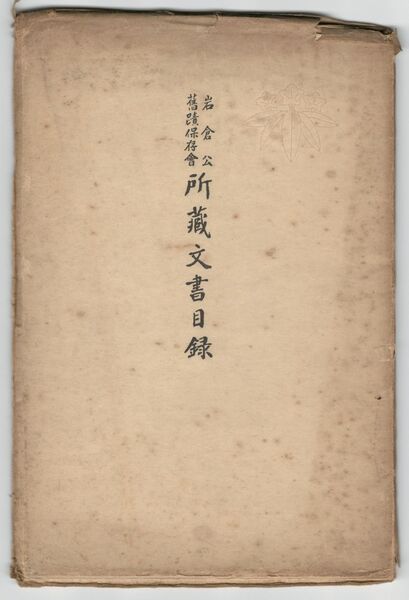 岩倉公
舊蹟保存會
所藏文書目録